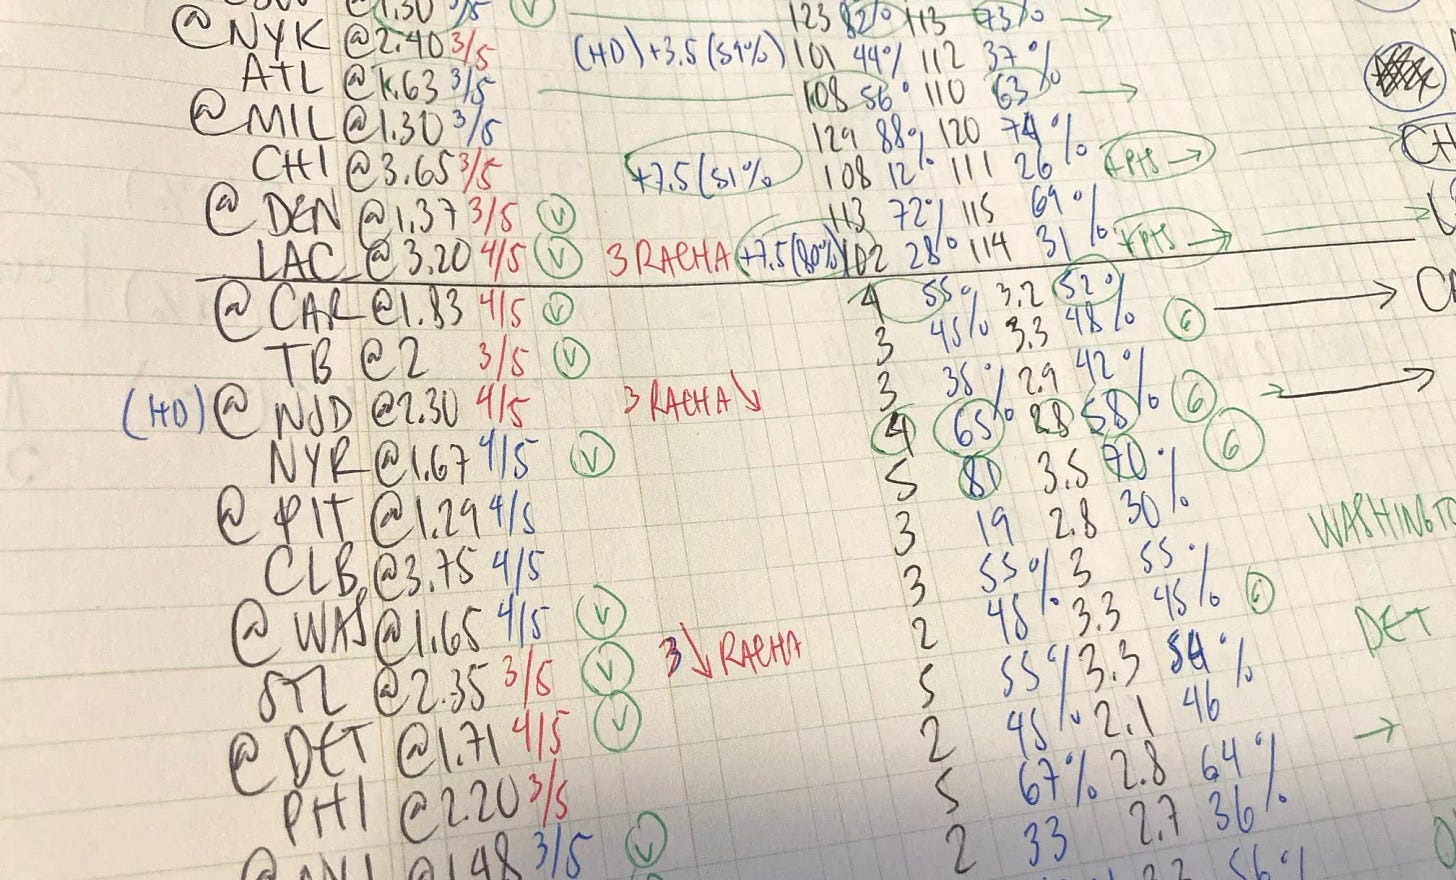 @1.30 3/5 V 123 82% 113 73% →
@NYK @2.40 3/5 (HD) +3.5 (59%) 101 44% 112 37%
ATL @1.63 3/5 108 56% 110 63% →
@MIL @1.30 3/5 129 88% 120 74%
CHI @3.65 3/5 +7.5 (51% 108 12% 111 26% +PTS →
@ DEN @1.37 3/5 V 113 72% 115 69%
LAC @3.20 4/5 V 3 RACHA +7.5 (80%) 102 28% 114 31% +PTS →
@ CAR @1.83 4/5 V 4 55% 3.2 52%
TB @2 3/5 V 3 45% 3.3 48% 6 →
(HD) @ NJD @2.30 4/5 3 RACHA ↘ 3 35% 2.9 42%
NYR @1.67 4/5 V 4 65% 2.8 58% 6 →
@ PIT @1.29 4/5 5 81 3.5 70% 6
CLB @3.75 4/5 3 19 2.8 30%
@ WAS @1.65 4/5 V 3 55% 3 55% WASHINGT
STL @2.35 3/5 V 3 ↘ RACHA 2 45% 3.3 45% 6
@ DET @1.71 4/5 V 5 55% 3.3 54% DET
PHI @2.20 3/5 2 45% 2.1 46
@1.48 3/5 V 5 67% 2.8 64% →
2 33 2.7 36%
56%